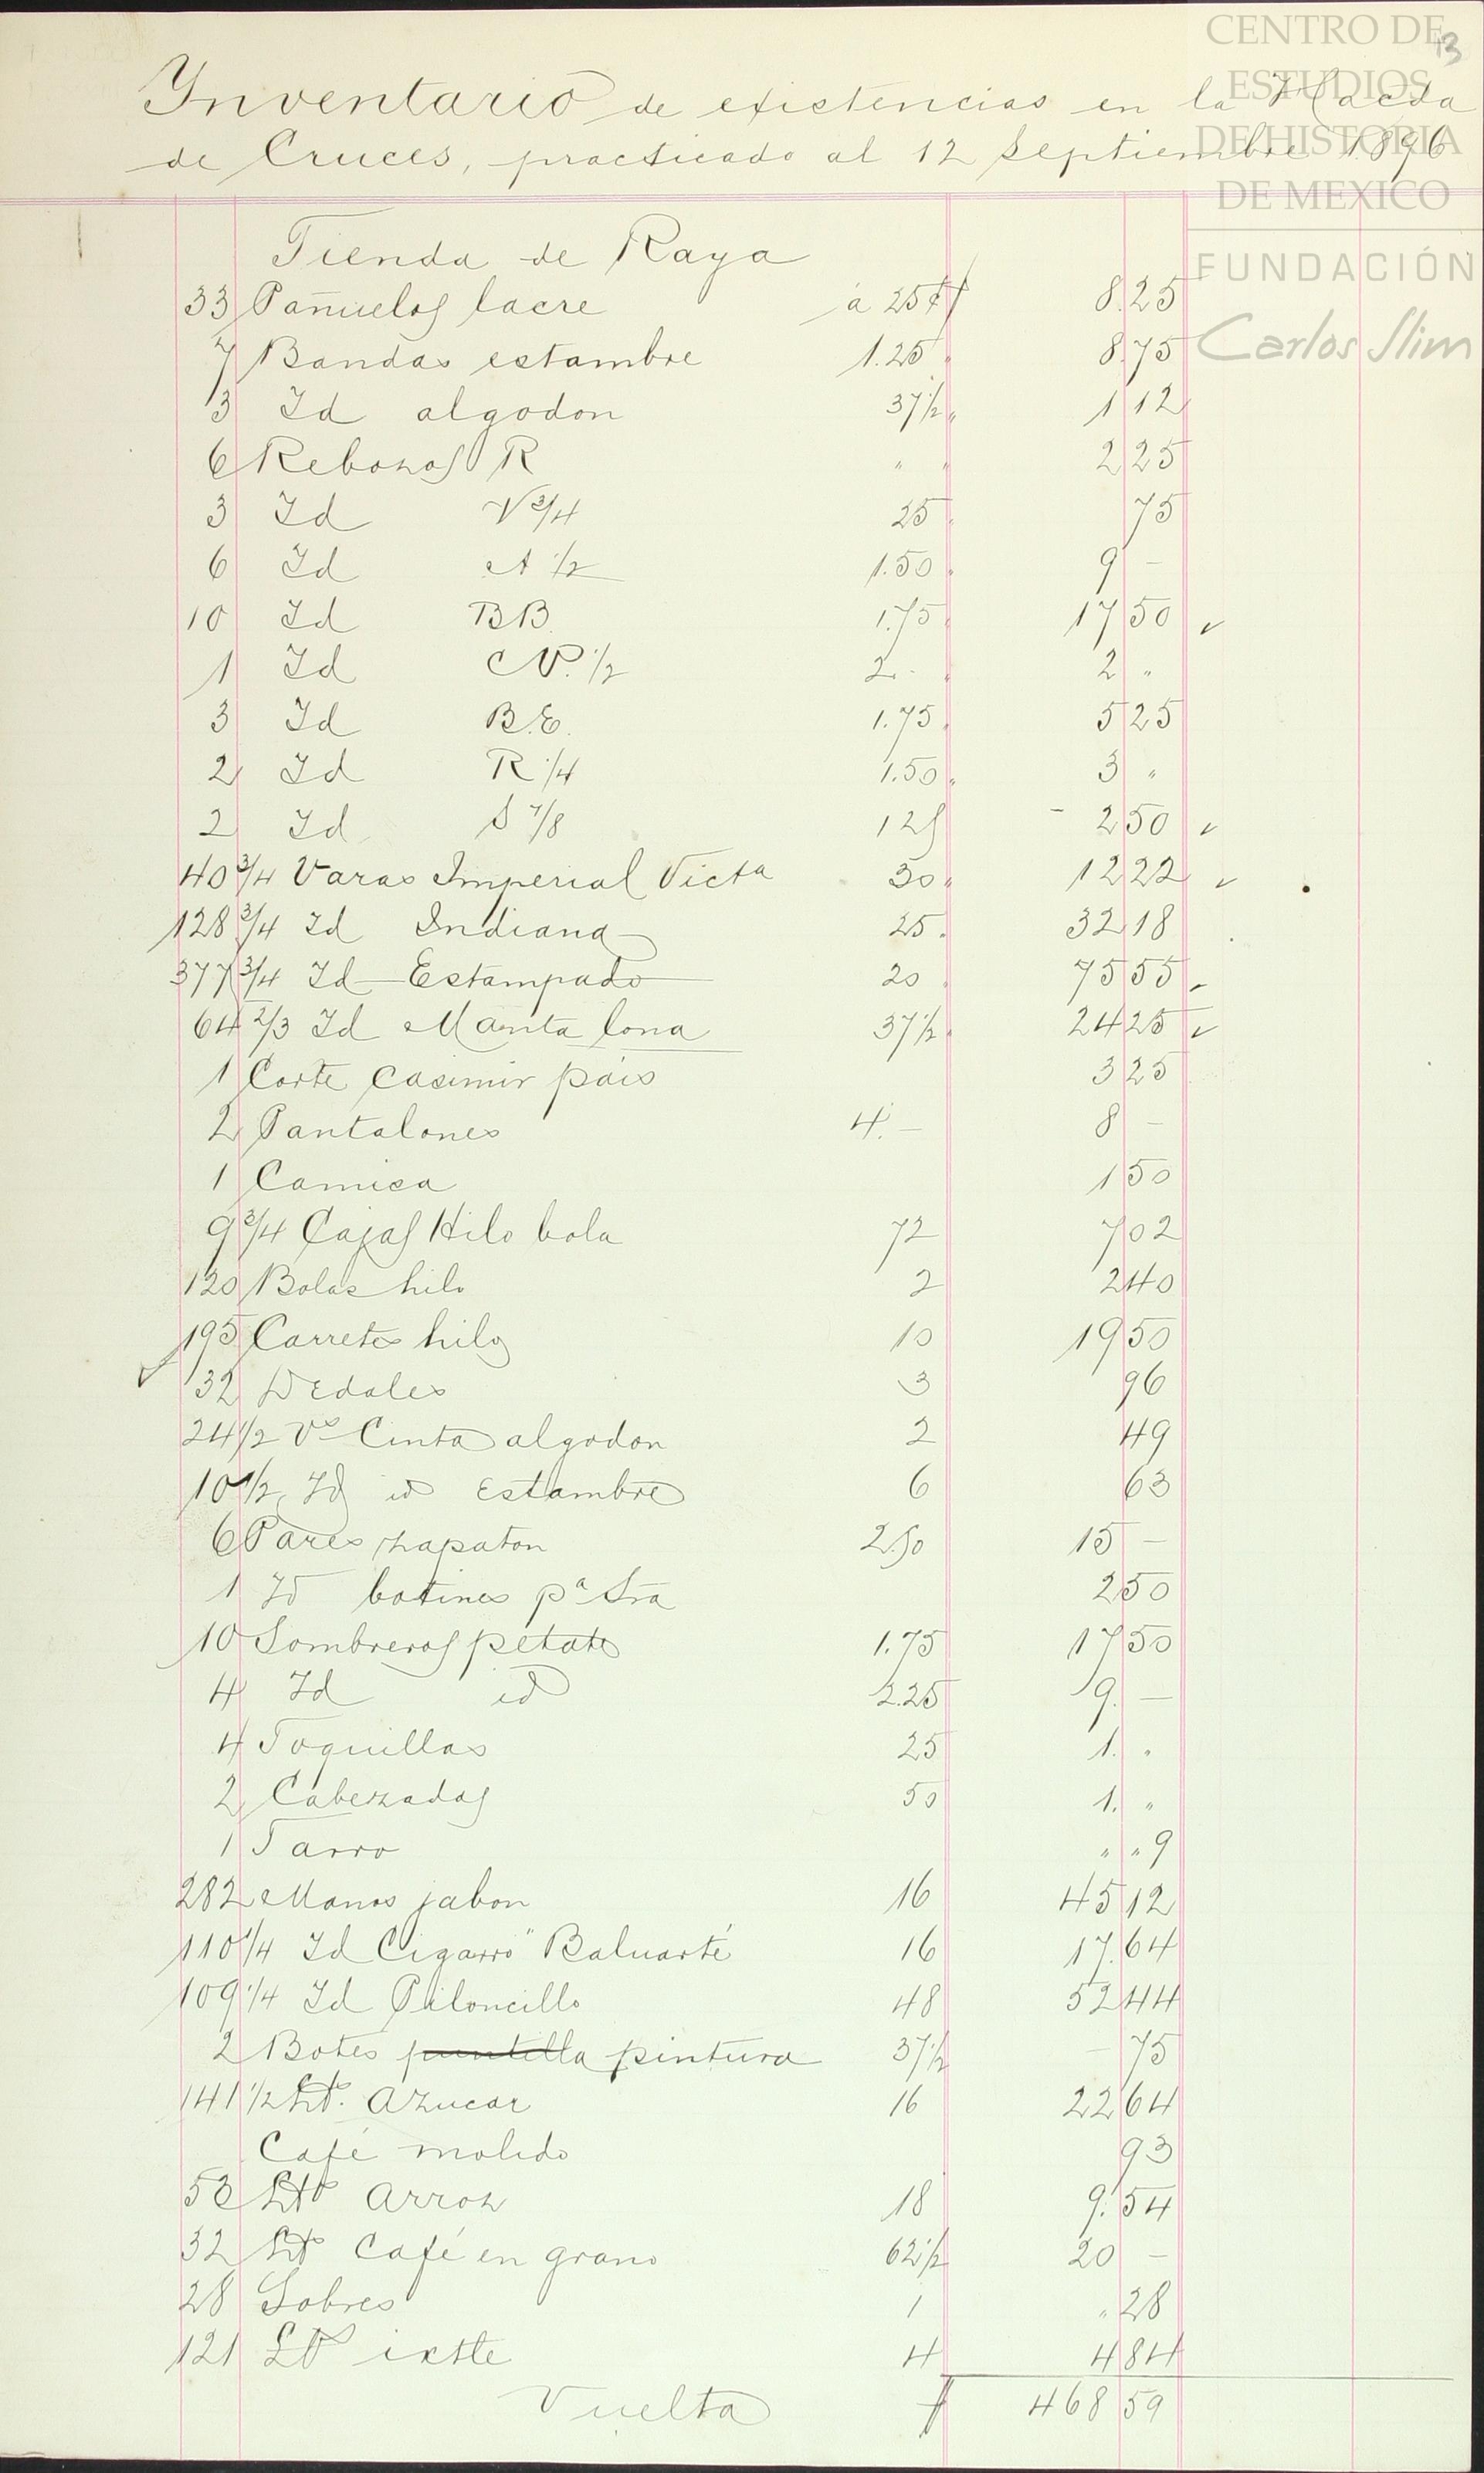 CENTRO DE
ESTUDIOS
DE HISTORIA
DE MEXICO
FUNDACIÓN
Carlos Slim
13
Ynventario de existencias en la Hacda
de Cruces, practicado al 12 Septiembre 1896
Tienda de Raya
33 Pañuelos lacre á 25¢ 8.25
7 Bandas estambre 1.25 " 8.75
3 Id algodon 37½ " 1 12
6 Rebozos R " " 2 25
3 Id V ¾ 25 " 75
6 Id A ½ 1.50 " 9 -
10 Id BB. 1.75 17 50 ✓
1 Id N. ½ 2 - 2 "
3 Id B.E. 1.75 " 5 25
2 Id R ¼ 1.50 " 3 "
2 Id S ⅞ 125 - 2 50 ✓
40 ¾ Varas Imperial Victa 30 " 12 22 ✓
128 ¾ Id Indiana 25 " 32 18
377 ¾ Id Estampado 20 75 55 ✓
64 ⅔ Id Manta lona 37½ " 24 25 ✓
1 Corte Casimir pais 3 25
2 Pantalones 4. - 8 -
1 Camisa 1 50
9 ¾ Cajas Hilo bola 72 7 02
120 Bolas hilo 2 2 40
195 Carretes hilo 10 19 50
✓ 32 Dedales 3 96
24 ½ Vs Cinta algodon 2 49
10 ½ Id id Estambre 6 63
6 Pares zapaton 2.50 15 -
1 Id botines pa Sra 2 50
10 Sombreros petate 1.75 17 50
4 Id id 2.25 9. -
4 Toquillas 25 1. "
2 Cabezadas 50 1. "
1 Tarro " " 9
282 Manos jabon 16 45 12
110 ¼ Id Cigarro "Baluarte" 16 17.64
109 ¼ Id Piloncillo 48 52 44
2 Botes pintura 37½ - 75
141 ½ Lts. Azucar 16 22 64
Café molido 93
53 Lts Arroz 18 9.54
32 Lts Café en grano 62½ 20 -
28 Sobres 1 " 28
121 Lbs ixtle 4 4 84
Vuelta $ 468 59